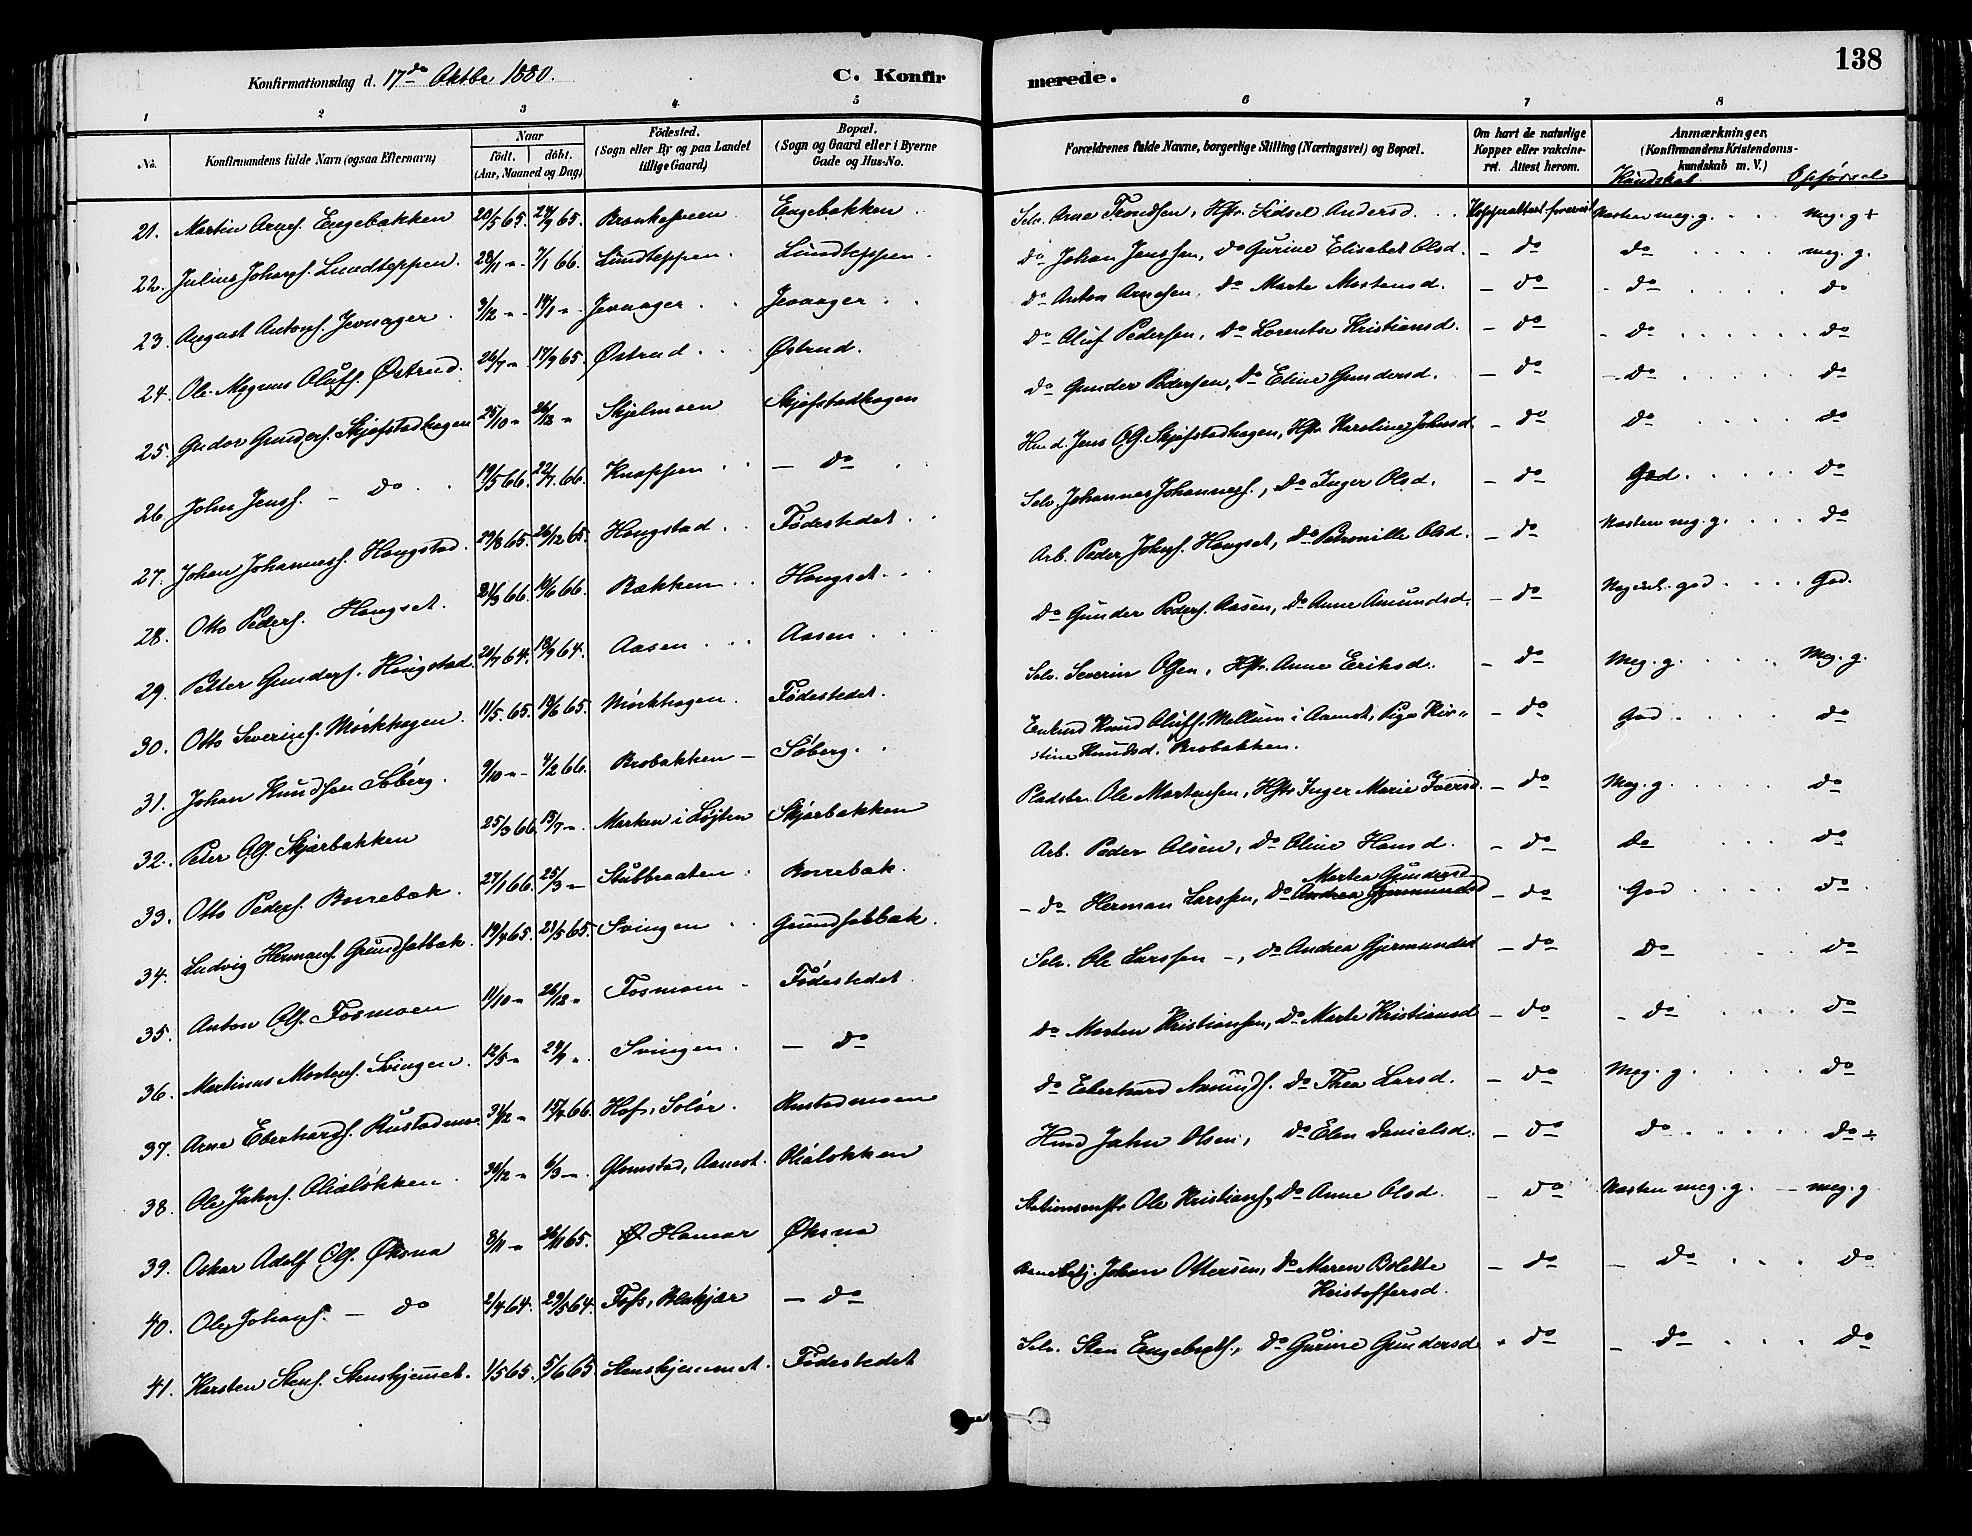 138
Konfirmationsdag d. 17de Oktbr 1880.
C. Konfirmerede.
1 2 3 4 5 6 7 8
No. Konfirmandens fulde Navn (ogsaa Efternavn) Naar født. døbt. (Aar, Maaned og Dag) Fødested. (Sogn eller By og paa Landet tillige Gaard) Bopæl. (Sogn og Gaard eller i Byerne Gade og Hus-No. Forældrenes fulde Navne, borgerlige Stilling (Næringsvei) og Bopæl. Om havt de naturlige Kopper eller vakcineret. Attest herom. Anmærkninger, (Konfirmandens Kristendomskundskab m. V.)
Kundskab Opførsel
21. Martin Arnes. Engebakken 20/5 65. 24/9 65. Engebakken Selv. Arne Trondsen, Hstr. Sidsel Andersd. Næsten meg. g. meg. g +
22. Julius Johans. Lundteppen. 7/1 66. Lundteppen. Lundteppen. do Johan Jenssen, do Gurine Elisabet Olsd. - do do meg. g.
23. August Antons. Jevnager. Jevnager Jevnager do Anton Arnesen, do Marte Mortensd. - do - do do
24. Ole Magnus Olufs. Østrud. 26/7 " 17/9 65. Østrud Østrud. do Oluf Pedersen, do Lorentse Kristiansd. - do - do do
25. Gudor Gunders. Skjefstadhagen 25/10 " 26/12 " Skjelmoen Skjefstadhagen do Gunder Pedersen, do Eline Gundersd. - do - do do
26. John Jens. - do 19/5 66. 22/7 66. Knappen - do Jens O.G. Skjefstadhagen, Hstr Karoline Johnsd - do do do
27. Johan Johannes. Hangstad. 26/12 65. Hangstad Fødestedet Selv. Johannes Johannes., do Inger Olsd. - do God do
28. Otto Peders. Hangset. 10/6 66. Bakken Hangset. Arb. Peder Johns. Hangset, do Petronille Olsd. - do Næsten meg. g. do
29. Petter Gunders. Hangstad. 64. 64. Aasen Aasen do Gunder Peders. Aasen, do Anne Amundsd. - do god God.
30. Otto Severins. Mørkhagen. 11/5 65. 18/6 65. Mørkhagen Fødestedet. Selv. Severin Olsen, Hstr. Anne Eriksd. - do Meg. g. Meg. g.
31. Johan Knudsen Søberg. 9/10 " 4/2 66. Brobakken - Søberg. Knud Olufs. Mellum i Aamot, Pige Kirstine Knudsd. Brobakken. - do God do
32. Peter Ols. Skjærbakken 25/3 66. Marken i Løjten Skjærbakken Pladsbr. Ole Martensen, Hstr Inger Marie Iversd. - do Meg. g do
33. Otto Peders. Borrebæk. 27/1 66. 25/3 " Stubbraaten Borrebæk. Arb. Peder Olsen, do Oline Hansd. - do do do
34. Ludvig Hermans. Grundsetbæk. 19/4 65. 21/5 65. Svingen Grundsetbæk. - do Herman Larssen, do Andrea Gjermundsd Martea Gundersd - do God do
35. Anton Ols. Fosmoen 11/10 " 26/12 " Fosmoen - Fødestedet Selv. Ole Larssen -, do Andrea Gjermundsd - do do do
36. Martinus Mortens. Svingen. 12/5 " Svingen. - do do Morten Kristiansen, do Marte Kristiansd - do - do do
37. Arne Eberhards. Rustadmo. 15/4 66. Hof, Solør. Rustadmoen do Eberhard Amunds. do Thea Larsd. - do Meg. g. do
38. Ole Jahns. Olialøkken. Glomstad, Aamot. Olialøkken Jahn Olsen, do Elen Danielsd. - do do. do ÷
39. Oskar Adolf Ols. Øksna 3/11 " 26/11 65. Ø Hamar Øksna Stationsmstr Ole Kristians., do Anne Olsd. - do Næsten meg. g. - meg. g
40. Ole Johans. - do 2/4 64. 29/5 64. Fåss, Blakjær - do Johan Ottersen, do Maren Bolette Kristoffersd. - do - do do
41. Karsten Stens. Stenskjemmet. 1/5 65. 5/6 65. Stenskjemmet. Fødestedet Selv. Sten Engebrets., do Gurine Gundersd - do - do do